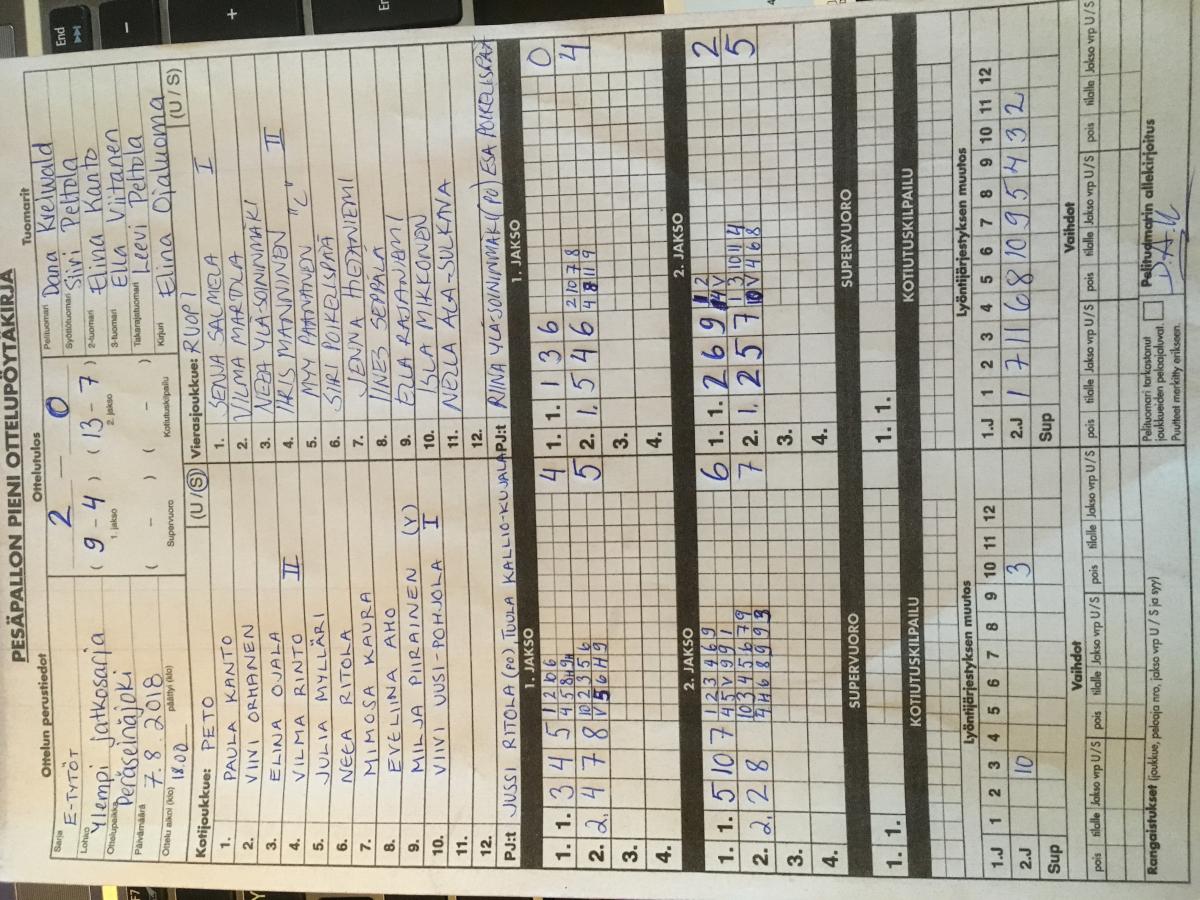 PESÄPALLON PIENI OTTELUPÖYTÄKIRJA
Ottelun perustiedot
Sarja E-TYTÖT
Lohko Ylempi jatkosarja
Ottelupaikka Peräseinäjoki
Päivämäärä 7.8.2018
Ottelu alkoi (klo) 18.00 päättyi (klo)
Ottelutulos
2 — 0
( 9 - 4 ) ( 13 - 7 )
1. jakso 2. jakso
( - ) ( - )
Supervuoro Kotiutuskilpailu
Tuomarit
Pelituomari Dana Krelwald
Syöttötuomari Siivi Peltola
2-tuomari Elina Kanto
3-tuomari Ella Viitanen
Takarajatuomari Leevi Peltola
Kirjuri Elina Ojaluoma
Kotijoukkue: PETO (U / S)
1. PAULA KANTO
2. VIIVI ORHANEN
3. ELINA OJALA
4. VILMA RINTO II
5. JULIA MYLLÄRI
6. NEEA RITOLA
7. MIMOSA KAURA
8. EVELIINA AHO
9. MILJA PIIRAINEN (V)
10. VIIVI UUSI-POHJOLA I
11.
12.
PJ:t JUSSI RITOLA (PO), TUULA KALLIO-KUJALA
Vierasjoukkue: RUOPI (U / S)
1. SENJA SALMELA I
2. VILMA MARTOLA
3. NEEA YLÄ-SOININMÄKI
4. IIRIS MANNINEN "C" II
5. MYY PAANANEN
6. SIRI POIKELISPÄÄ
7. JENNA HIETANIEMI
8. IINES SEPPÄLÄ
9. ELLA RAJANIEMI
10. ISLA MIKKONEN
11. NELLA ALA-SULKAVA
12.
PJ:t RIINA YLÄ-SOININMÄKI (PO) ESA POIKELISPÄÄ
1. JAKSO
1. 1. 3 4 5 4
2. 2. 4 7 8 5
3.
4.
1. JAKSO
1. 1. 1 3 6 0
2. 1. 5 4 6 4
3.
4.
2. JAKSO
1. 1. 5 10 7 6
2. 2. 2 8 7
3.
4.
2. JAKSO
1. 1. 2 6 9 2
2. 1. 2 5 7 5
3.
4.
SUPERVUORO
1. 1.
SUPERVUORO
1. 1.
KOTIUTUSKILPAILU
KOTIUTUSKILPAILU
Lyöntijärjestyksen muutos
1 2 3 4 5 6 7 8 9 10 11 12
1.J
2.J 10 3
Sup
Lyöntijärjestyksen muutos
1 2 3 4 5 6 7 8 9 10 11 12
1.J
2.J 1 7 11 6 8 10 9 5 4 3 2
Sup
Vaihdot
pois tilalle Jakso vrp U/S pois tilalle Jakso vrp U/S pois tilalle Jakso vrp U/S
Vaihdot
pois tilalle Jakso vrp U/S pois tilalle Jakso vrp U/S pois tilalle Jakso vrp U/S
Rangaistukset (joukkue, pelaaja nro, jakso vrp U / S ja syy)
Pelituomari tarkastanut
joukkueiden pelaajaluvat.
Puutteet merkitty erikseen.
Pelituomarin allekirjoitus
End